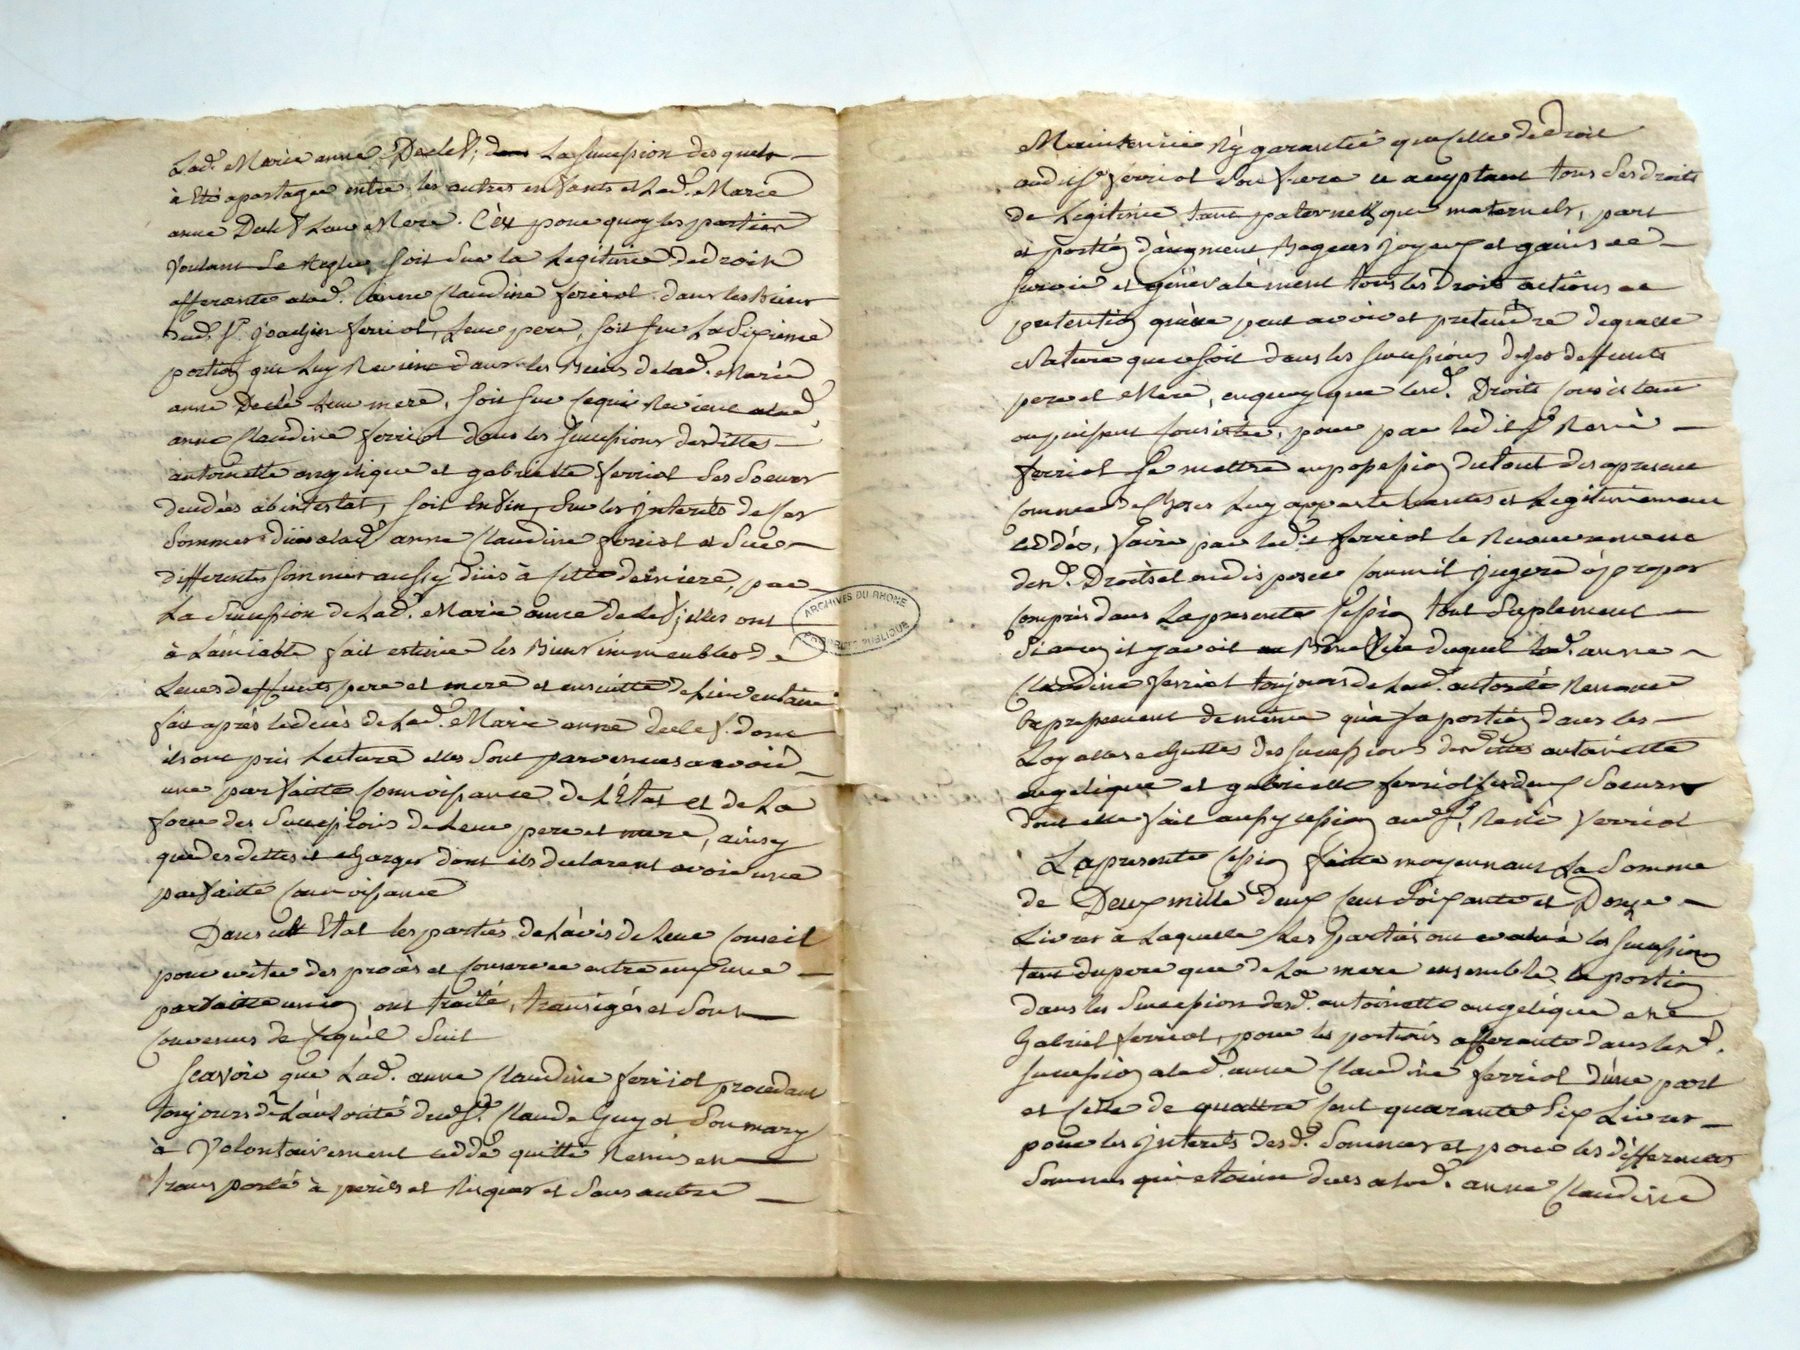 Lad. Marie anne Declef; dans La succession desquels
à été apartagée entre les autres enfants et Lad. Marie
anne Declef Leur Mere. C'est pour quoy les parties
voulant se regler soit sur la Legitime de droit
afferante alad. anne Claudine ferriol dans les Biens
dud. Sr. joachin ferriol, Leur pere, soit sur La Sixieme
portion que Luy Revient dans les Biens de lad. Marie
anne Declef Leur mere, soit sur ce qui Revient alad.
anne Claudine ferriol dans les successions desdittes
antoinette angelique et gabrielle ferriol Ses Soeurs
decedées abintestat, soit Enfin, sur les jnterets de ces
Sommes dües alad. anne Claudine ferriol et sur
differentes sommes aussy dües à cette derniere, par
La succession de Lad. Marie anne Declef; elles ont
à L'amiable fait estimer les Biens immeubles de
Leurs deffunts pere et mere et ensuitte de L'inventaire
fait après le decès de Lad. Marie anne declef. dont
ils ont pris Lecture elles Sont parvenues a avoir
une parfaitte connoissance de L'État et de La
force des Successions de Leur pere et mere, ainsy
que des dettes et charges dont ils declarent avoir une
parfaitte connoissance
Dans cet Etat les parties de L'avis de Leur Conseil
pour eviter des procès et conserver entre eux une
parfaitte union ont traité, transigés et Sont
Convenus de Ce qu'il Suit
Scavoir que Lad. anne Claudine ferriol procedant
toujours de L'autorité dud. Sr. Claude Guyot Son mary
à Volontairement cedde quitte Remis et
transporté à perils et Risques et Sans autre
Maintenüe Ny garantie que Celle de droit
audit Sr ferriol Son frere ce acceptant tous Ses droits
de Legitime tant paternels que maternels, part
et portion d'augment Bagues joyeux et gains de
survie et généralement tous les Droits actions et
pretention qu'elle peut avoir et pretendre de quelle
Nature que ce soit dans les successions de Ses deffunts
pere et Mere, en quoy que lesd. Droits Consistent
ou puissent consister, pour par led it Sr Renè
ferriol Se mettre en possession du tout des apresent
comme de Choses Luy appartenantes et Legitimement
ceddés, faire par ledit ferriol le Recouvrement
desd. Droits et en disposer comme il jugera à propos
compris dans La presente Cession tout Suplement
Si aucun il y avoit au Benefice duquel lad. anne
Claudine ferriol toujours de Lad. autorité Renonce
Expressement de même qu'a sa portion dans les
Loyalles echuttes des successions desdittes antoinette
angelique et gabrielle ferriol Ses deux Soeurs
dont elle fait aussy cession aud. Sr. Renè ferriol
La presente Cession faitte moyennant La Somme
de Deux mille deux cent Soixante et Douze
Livres à Laquelle Les Parties ont evalué les succession
tant du pere que de La mere ensemble la portion
dans les Succession desd. antoinette angelique et
Gabriel ferriol, pour les portions afferante dans lesd.
succession alad. anne Claudine ferriol d'une part
et Celle de quattre cent quarante Six Livres
pour les jnterets desd. Sommes et pour les differentes
Sommes qui etoient dues alad. anne Claudine
ARCHIVES DU RHONE